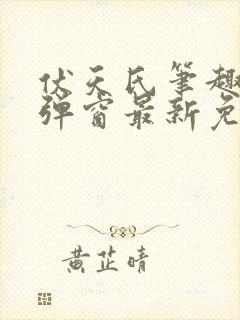 伏天氏笔趣
弹窗最新免
黄芷晴